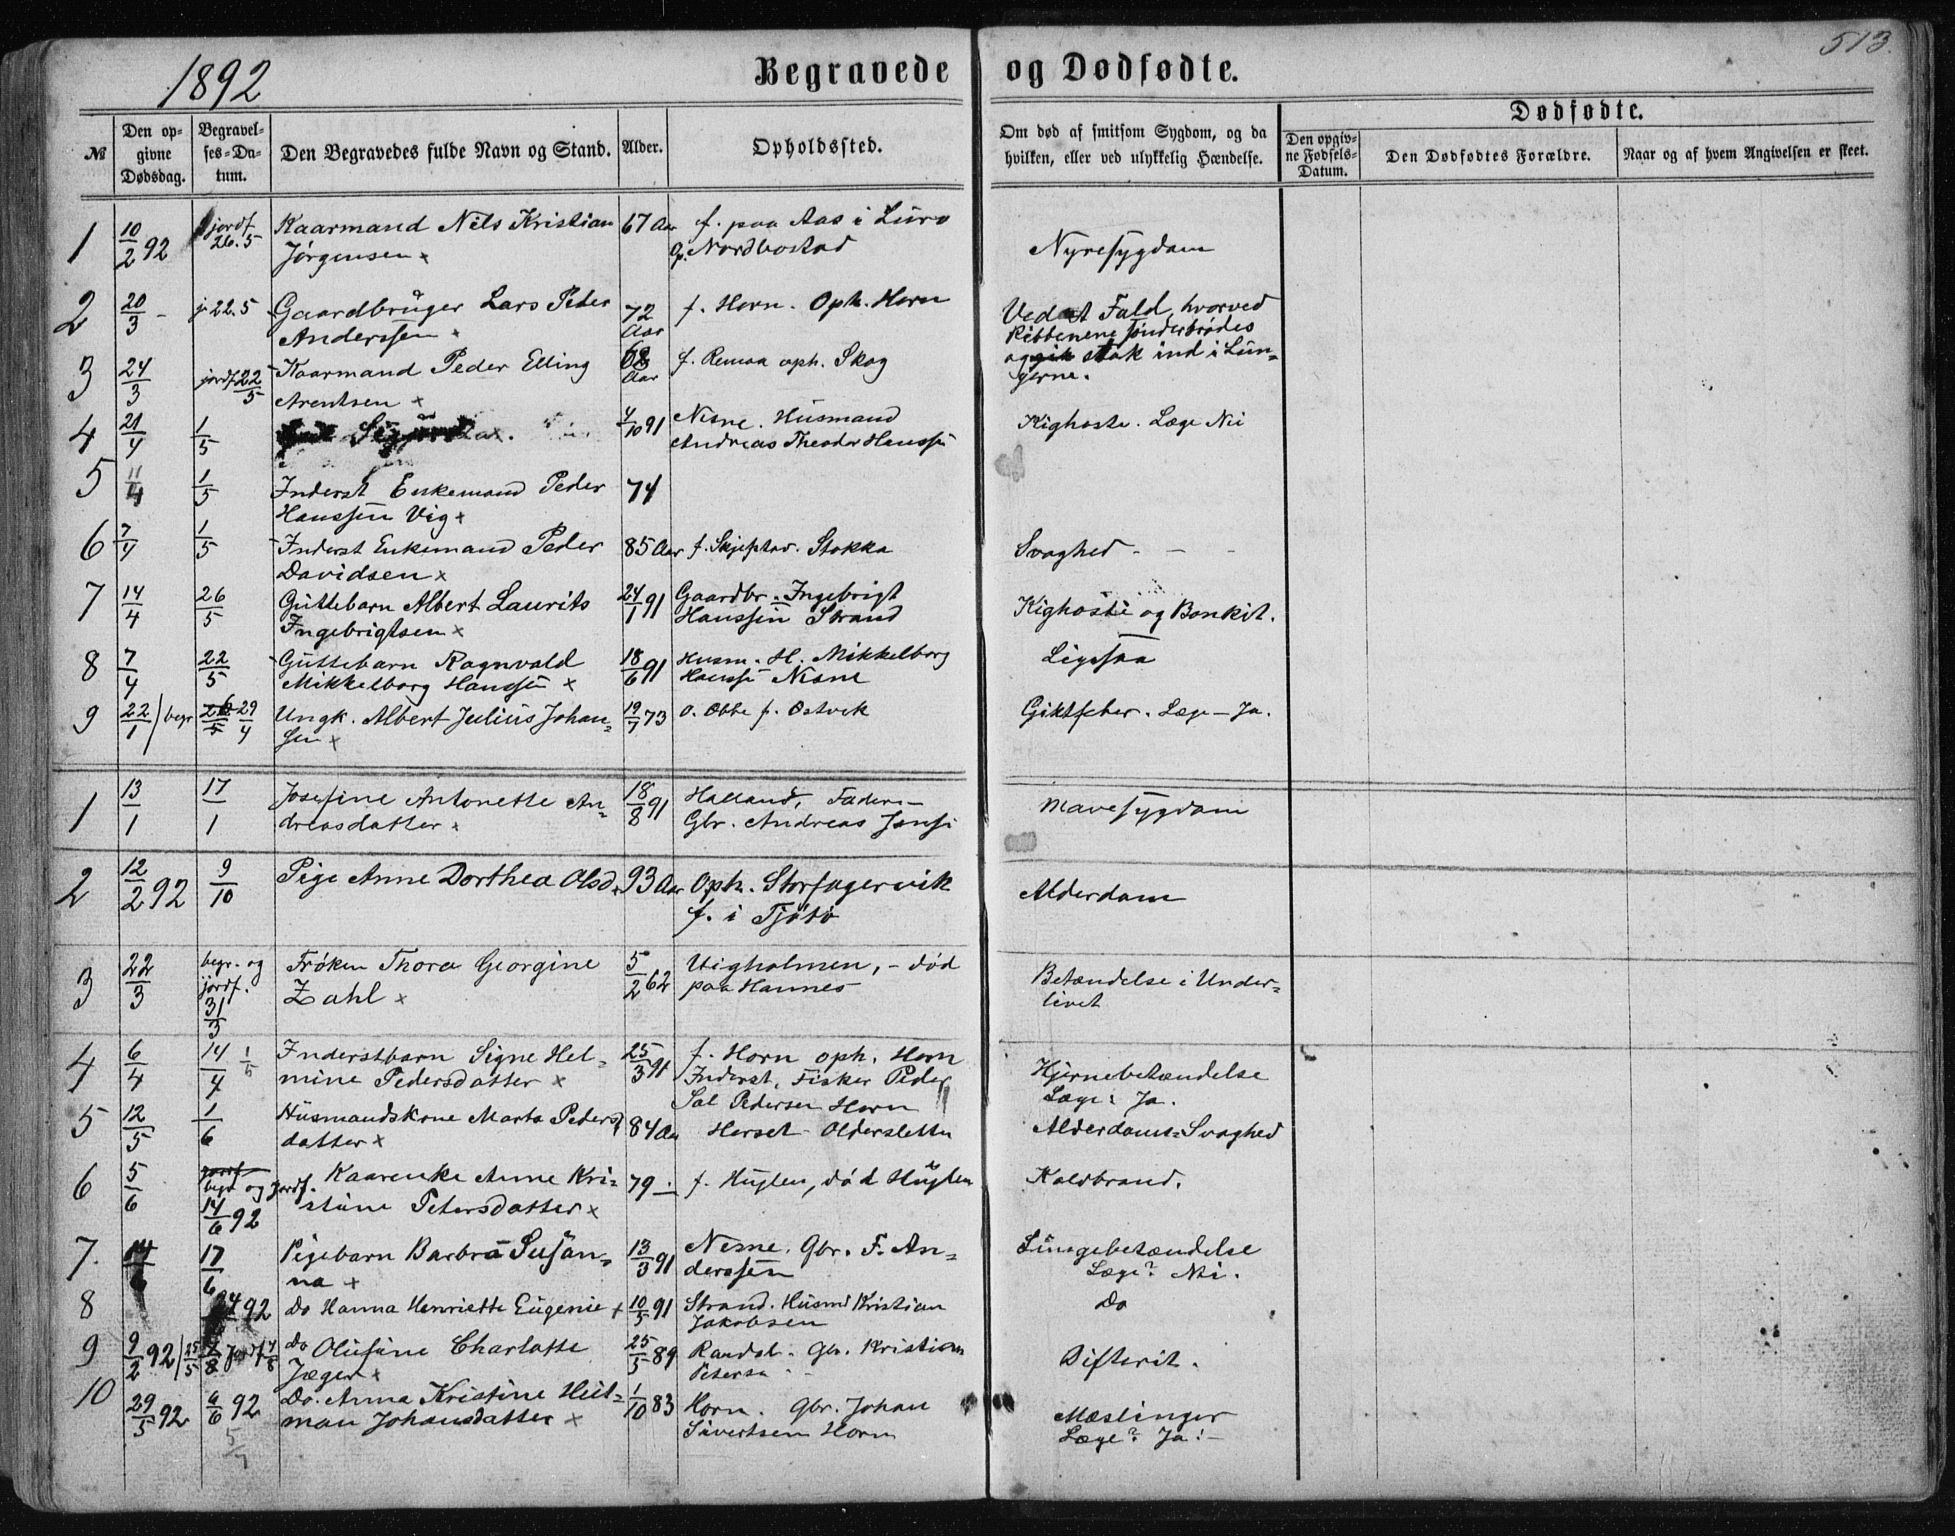 1892
Begravede og Dødfødte.
513.
№
Den opgivne Dødsdag.
Begravelses-Datum.
Den Begravedes fulde Navn og Stand.
Alder.
Opholdssted.
Om død af smitsom Sygdom, og da hvilken, eller ved ulykkelig Hændelse.
Dødfødte.
Den opgivne Fødsels-Datum.
Den Dødfødtes Forældre.
Naar og af hvem Angivelsen er skeet.
1 10/2 92 jordf 26.5 Kaarmand Nils Kristian 67 Aar f. paa Aas i Lurø
Jørgensen x Op. Nordbostad Nyresygdom
2 20/3 - j 22.5 Gaardbruger Lars Peder 72 Aar f. Horn. Oph. Horn Ved et Fald, hvorved
Anderssen x Ribbenene sønderbrødes
3 24/3 jordf 22/5 Kaarmand Peder Elling Aar f. Remaa oph. Skog og stak ind i Lun=
Arentsen x gerne.
4 21/4 1/5 4/10 91 Nesne. Husmand Kighoste. Læge Nei
Andreas Theodor Hanssen
5 11/4 1/5 Inderst Enkemand Peder 74
Hanssen Vig x
6 7/4 1/5 Inderst Enkemand Peder 85 Aar f. Stokka Svaghed - - -
Davidsen x
7 14/4 26/5 Guttebarn Albert Laurits 24/1 91 Gaardbr. Ingebrigt Kighoste og Bonkit.
Ingebrigtsen x Hanssen Strand
8 7/4 22/5 Guttebarn Ragnvald 18/6 91 Husm. H. Mikkelborg Ligesaa
Mikkelborg Hanssen x Hanssen Nesne
9 22/1 / begr 29/4 Ungk. Albert Julius Johan= 19/7 73 o. Obbe f. Østvik Giktfeber. Læge - Ja.
sen x
1 13/1 17/1 Josefine Antonette An= 18/8 91 Halland, Fader - Mavesygdom
dreasdatter x Gbr. Andreas Jensen
2 12/2 92 9/10 Pige Anne Dorthea Olsd. x 93 Aar Oph. Storfagervik Alderdom
f. i Tjøtø
3 22/3 begr. og jordf. 31/3 Frøken Thora Georgine 5/2 62 Vigholmen, - død Betændelse i Under=
Zahl x paa Hannes livet
4 6/4 14/4 1/6 Inderstbarn Signe Hel= 25/3 91 f. Horn oph. Horn Hjernebetændelse
mine Pedersdatter x Inderst, Fisker Peder Læge: Ja.
Sal Pedersen Horn
5 12/5 1/6 Husmandskone Marta Peders= 84 Aar Herset Oldersletten Alderdoms=Svaghed
datter x
6 5/6 begr og jordf. 14/6 92 Kaarenke Anne Kri= 79 - f. Huglen, død Huglen Koldbrand.
stine Petersdatter x
7. 17/6 Pigebarn Barbra Susan= 13/3 91 Nesne. Gbr. F. An= Lungebetændelse
na x derssen Læge? Nei.
8 92 Do Hanna Henriette Eugenie x 10/5 91 Strand. Husmd Kristian Do
Jakobsen
9 9/2 92 / 25/5 Jordf Do Olufine Charlotte 25/5 89 Gbr. Kristian Difterit.
Jæger x Peterse
10 29/5 92 6/6 92 Do. Anna Kristine Heit= 1/10 83 Horn. Gbr. Johan Mæslinger
man Johansdatter x Sivertsen Horn Læge? Ja! -
5/7